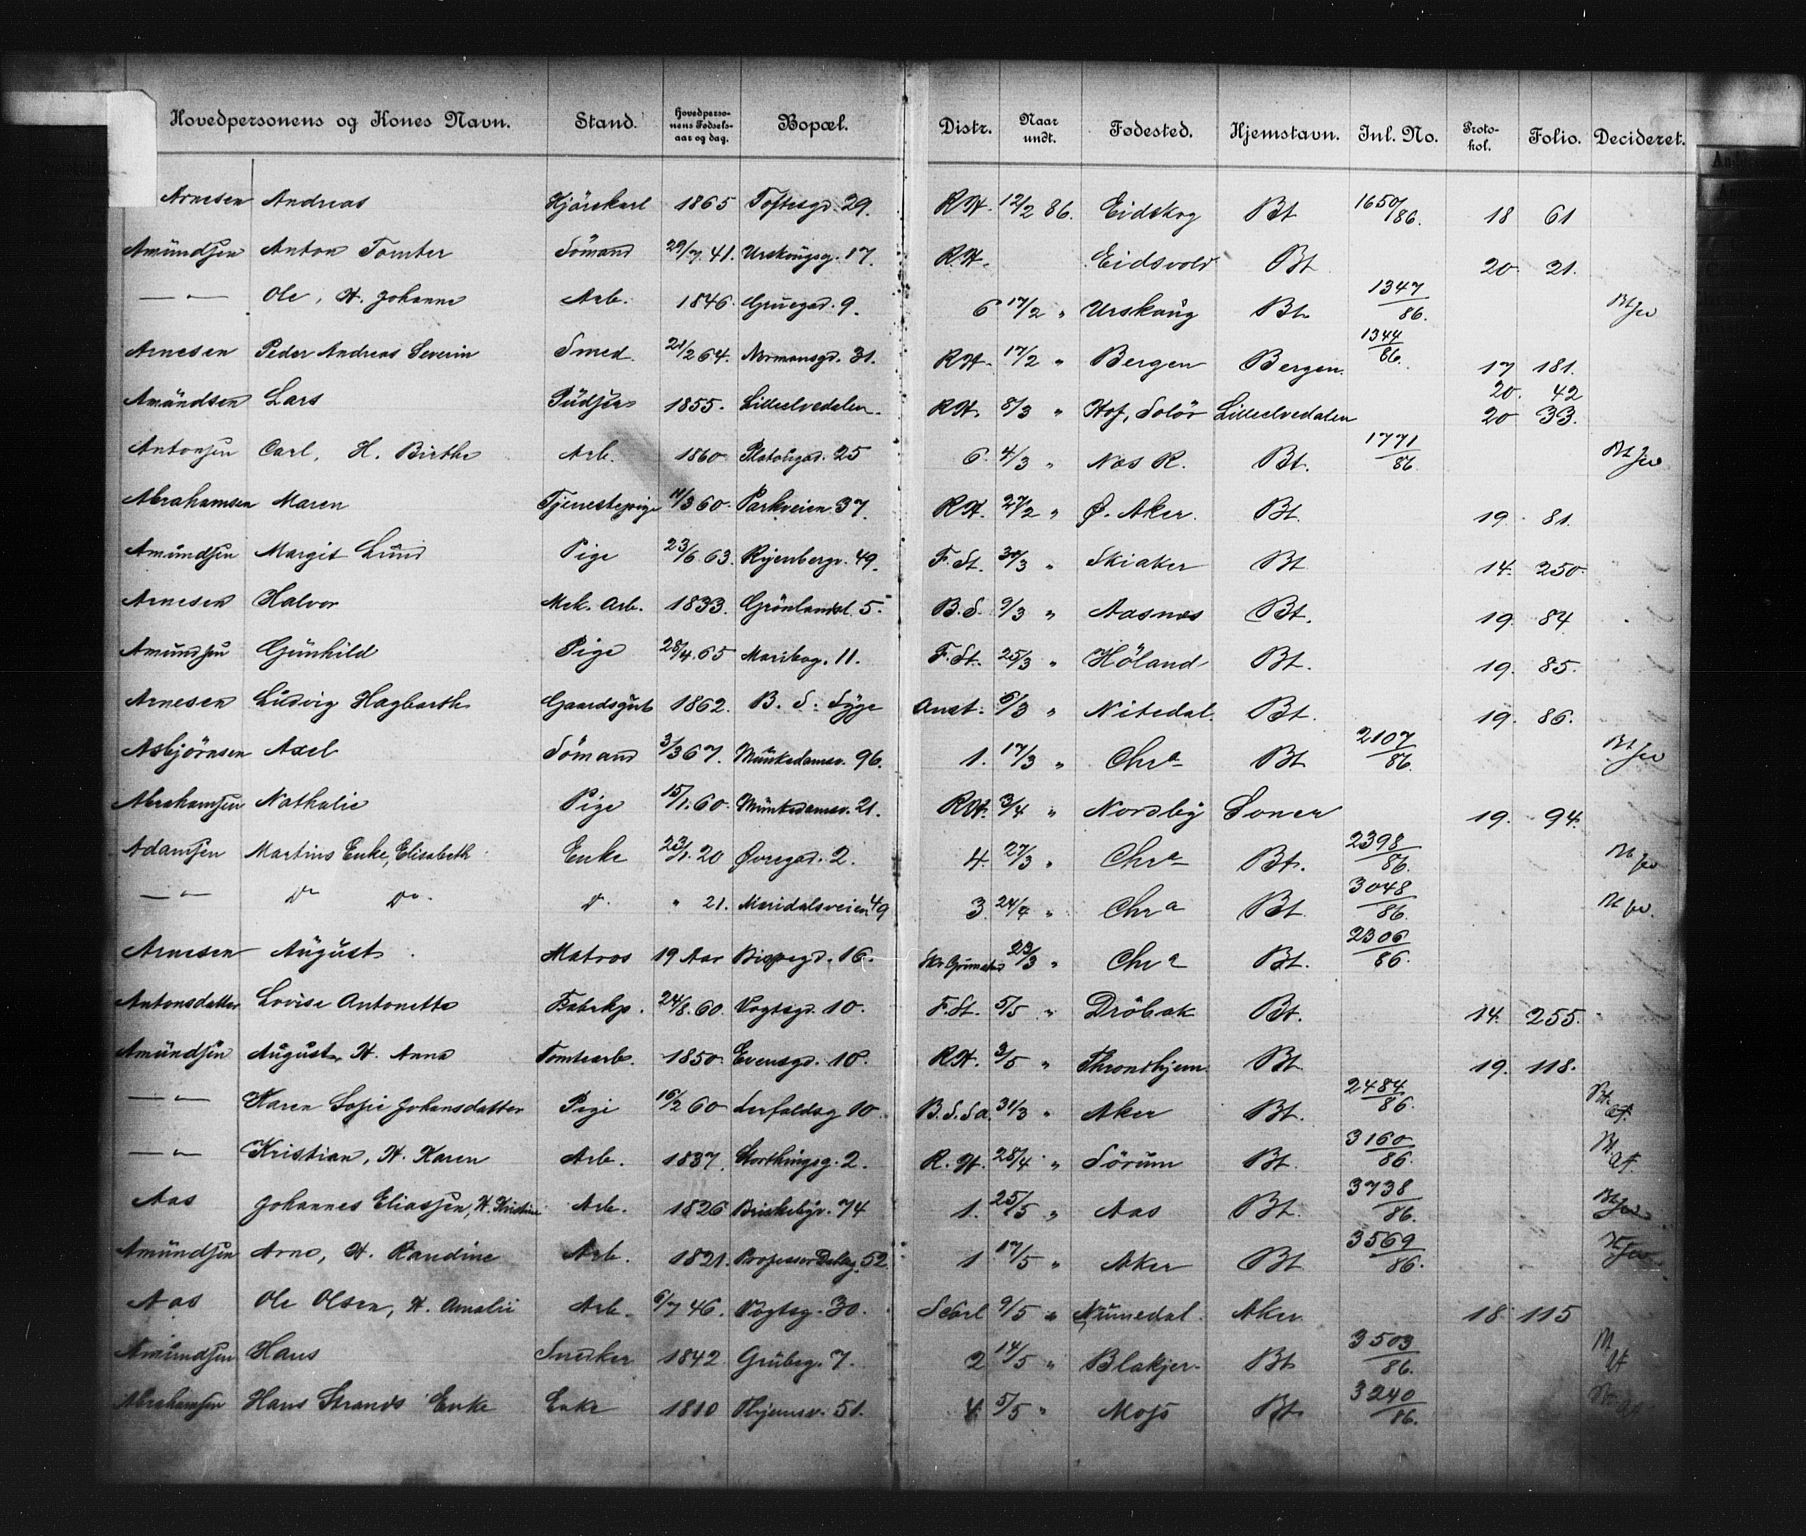 Hovedpersonens og Kones Navn. Stand. Hovedpersonens Fødselsaar og dag. Bopæl. Distr. Naar undt. Fødested. Hjemstavn. Inl. No. Protokol. Folio. Decideret.
Arnesen Andreas Kjørekarl 1865 Toftesgd. 29. R.H. 12/2 86. Eidskog Bt 1650/86. 18 61
Amundsen Anton Tomter Sömand 29/7 41. Urskougsg. 17. R.H. Eidsvold Bt 20. 21.
— " — Ole, H. Johanne Arb. 1846. Gruegad. 9. 6 17/2 " Urskoug Bt 1347/86. Bt Jev
Arnesen Peder Andreas Severin Smed. 21/2 64. Normansgd. 31. R.H. 17/2 " Bergen Bergen. 1344/86. 17 181.
20. 42
Amundsen Lars 1855. Lilleelvedalen. R.H. 8/3 " Hof, Solör Lilleelvedalen 20 33.
Antonsen Carl, H. Birthe Arb. 1860 Platougad. 25 6. 4/3 " Næs R. Bt. 1771/86 Bt Jev
Abrahamsen Maren Tjenestepige 11/3 60. Parkveien 37. R.H. 27/2 " Ø. Aker. Bt. 19. 81.
Amundsen Margit Lund Pige 23/6 63. Rijenbergv. 49. F. St. 30/3 " Skiaker Bt 14. 250.
Arnesen Halvor Mek. Arb. 1833. Grönlandsl. 5. B.S. 9/3 " Aasnes Bt. 19. 84.
Amundsen Gunhild Pige 28/4 65 Maribog. 11. F. St. 25/3 " Höland Bt. 19. 85.
Arnesen Ludvig Hagbarth Gaardsgut 1862. B. S. Syge Anst. 6/3 " Nitedal. Bt. 19. 86.
Asbjörnsen Axel Sömand 3/3 67. Munkedamsv. 96. 1. 17/3 " Chra Bt 2107/86. Bt Jev
Abrahamsen Nathalie Pige 15/1 60. Munkedamsv. 21. R.H. 3/4 " Nordby Soner 19. 94.
Adamsen Martins Enke, Elisabeth Enke 23/1 20 Øvregad. 2. 4. 27/3 " Chra Bt. 2398/86. Bt Jev
— " — Do Do. Do. " 21. Maridalsveien 49 3 24/4 " Chra Bt 3048/86. Bt Jev.
Arnesen August Matros 19 Aar Bispegd. 16. 23/3 " Chra Bt. 2306/86.
Antonsdatter Lovise Antonette Fabrikp. 24/8. 60. Vogtsgd. 10. F. St. 5/5 " Dröbak Bt. 14. 255.
Amundsen August, H. Anna Tomtearb. 1850. Evensgd. 10. R.H. 3/5 " Throndhjem. Bt 19. 118.
— " — Karen Sofie Johansdatter Pige 16/2 60 Lerfaldsg 10. B.S.Sa. 31/3 " Aker Bt. 2484/86. Bt. af.
— " — Kristian, H. Karen Arb. 1837. Storthingsg. 2. R.H. 28/4 " Sörum Bt. 3160/86. Bt. af.
Aas Johannes Eliassen, H. Kristine Arb. 1826 Briskebyv. 74 1. 25/5 " Aas Bt. 3738/86. Bt Jev
Amundsen Arne, H. Randine Arb. 1821. Professor Dahlsg. 52. 1. 17/5 " Aker Bt 3569/86. Bt Jev
Aas Ole Olsen, H. Amalie Arb. 6/7 46. Vogtsg. 30. 9/5 " Numedal. Aker 18. 115
Amundsen Hans Snedker 1842. Grubeg. 7. 2 14/5 " Blakjer. Bt 3503/86. Bt af
Abrahamsen Hans Strands Enke Enke 1810 Thjemsv. 51. 4. 5/5 " Moss Bt 3240/86. Bt af